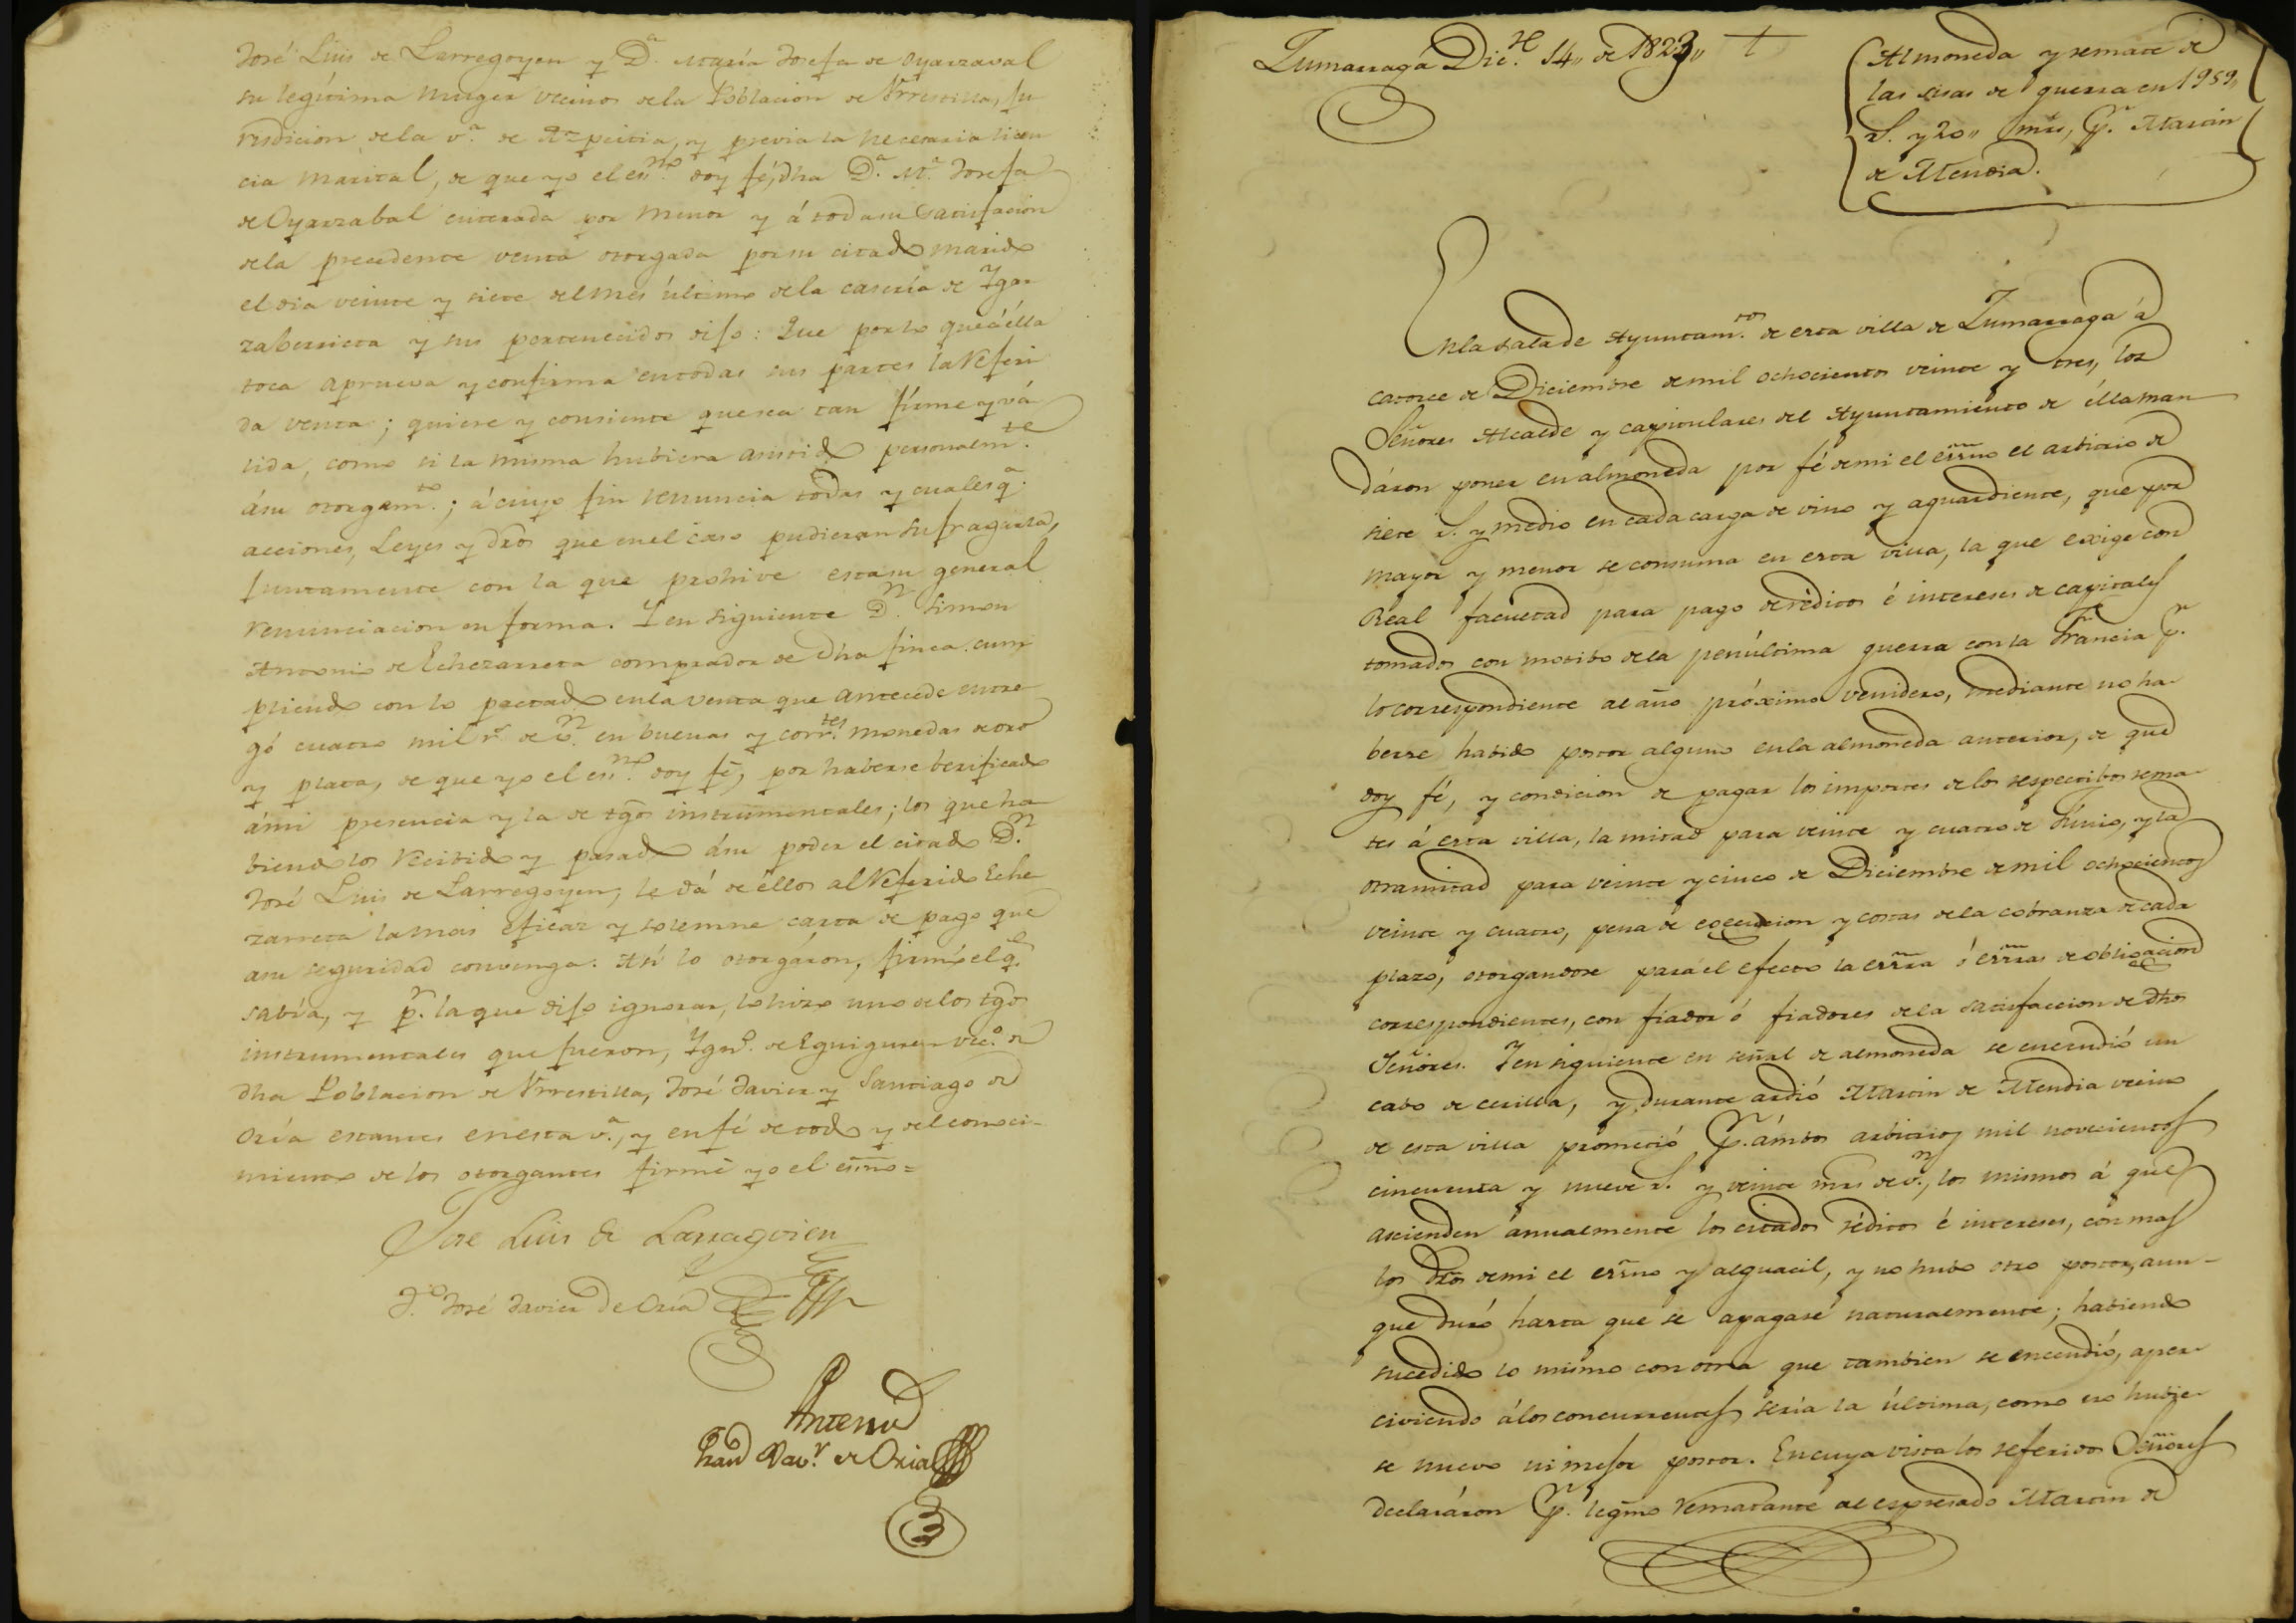 José Luis de Larregoyen y D.ª María Josefa de Oyarzaval
su legítima muger vecinos dela Poblacion de Vrrestilla, Ju
risdicion dela v.ª de Azpeitia, y previa la necesaria licen
cia marital, de que yo el es.no doy fé, dha D.ª M.ª Josefa
de Oyarzabal enterada por menor y á toda su satisfacion
dela precedente venta otorgada por su citado marido
el dia veinte y siete del mes último dela casería de Ygar
zaberrieta y sus pertenecidos dijo: Que por lo que á élla
toca aprueva y confirma en todas sus partes la referi
da venta; quiere y consiente que sea tan firme y vá
lida, como si la misma hubiera asistido personalm.te
ásu otorgam.to; á cuyo fin renuncia todas y cualesq.ª
acciones, Leyes y dros que en el caso pudieran sufragarla,
juntamente con la que prohive esta su general
renunciacion en forma. Y en siguiente D.n Simon
Antonio de Echezarreta comprador de dha finca cum
pliendo con lo pactado en la venta que antecede entre
gó cuatro mil r.s de v.n en buenas y corr.tes monedas de oro
y plata, de que yo el es.no doy fé, por haberse berificado
ámi presencia y la de tgos instrumentales; los que ha
biendolos recibido y pasado ásu poder el citado D.n
José Luis de Larregoyen, le dá de éllos al referido Eche
zarreta la mas eficaz y solemne carta de pago que
asu seguridad convenga. Asi lo otorgáron, firmó el q.e
sabía, y p.r la que dijo ignorar, lo hizo uno de los tgos
instrumentales que fueron, Ygn.o de Eguiguren vec.o de
dha Poblacion de Vrrestilla, José Javier y Santiago de
Oria estantes en esta v.ª, y en fé de todo y del conoci-
miento de los otorgantes firmé yo el esno=
Jose Luis de Larragoien
T.o José Javier de Oria
Antemi
Fran.co Xav.r de Oria
Zumarraga Dic.re 14,, de 1823,, †
Almoneda y remate de
las sisas de guerra en 1959,,
r.s y 20,, mrs, p.r Martin
de Mendia.
En la sala de Ayuntam.tos de esta villa de Zumarraga á
catorce de Diciembre de mil ochocientos veinte y tres, los
Señores Alcalde y capitulares del Ayuntamiento de élla man
dáron poner en almoneda por fé de mi el esrno el arbitrio de
siete r.s y medio en cada carga de vino y aguardiente, que por
mayor y menor se consuma en esta villa, la que exige con
Real facultad para pago de réditos é intereses de capitales
tomados con motibo de la penúltima guerra con la Francia p.r
lo correspondiente al año próximo venidero, mediante no ha-
berse habido postor alguno en la almoneda anterior, de que
doy fé, y condicion de pagar los importes de los respectibos rema-
tes á esta villa, la mitad para veinte y cuatro de Junio, y la
otra mitad para veinte y cinco de Diciembre de mil ochocientos
veinte y cuatro, pena de egecucion y costas de la cobranza de cada
plazo, otorgandose para el efecto la esrra ó esrras de obligacion
correspondientes, con fiador ó fiadores de la satisfaccion de dhos
Señores. Y en siguiente en señal de almoneda se encendió un
cabo de cerilla, y durante ardió Martin de Mendia vecino
de esta villa prometió p.r ámbos arbitrios mil novecientos
cincuenta y nueve r.s y veinte mrs de v.n, los mismos á que
ascienden ánualmente los citados réditos é intereses, con mas
los dros de mi el esrno y alguacil, y no hubo otro postor, aun-
que duró hasta que se apagase naturalmente; habiendo
sucedido lo mismo con otra que tambien se encendió, aper-
civiendo á los concurrentes sería la última, como no hubie-
se nuevo ni mejor postor. En cuya vista los referidos Señores
declaráron p.r legmo rematante al espresado Martin de